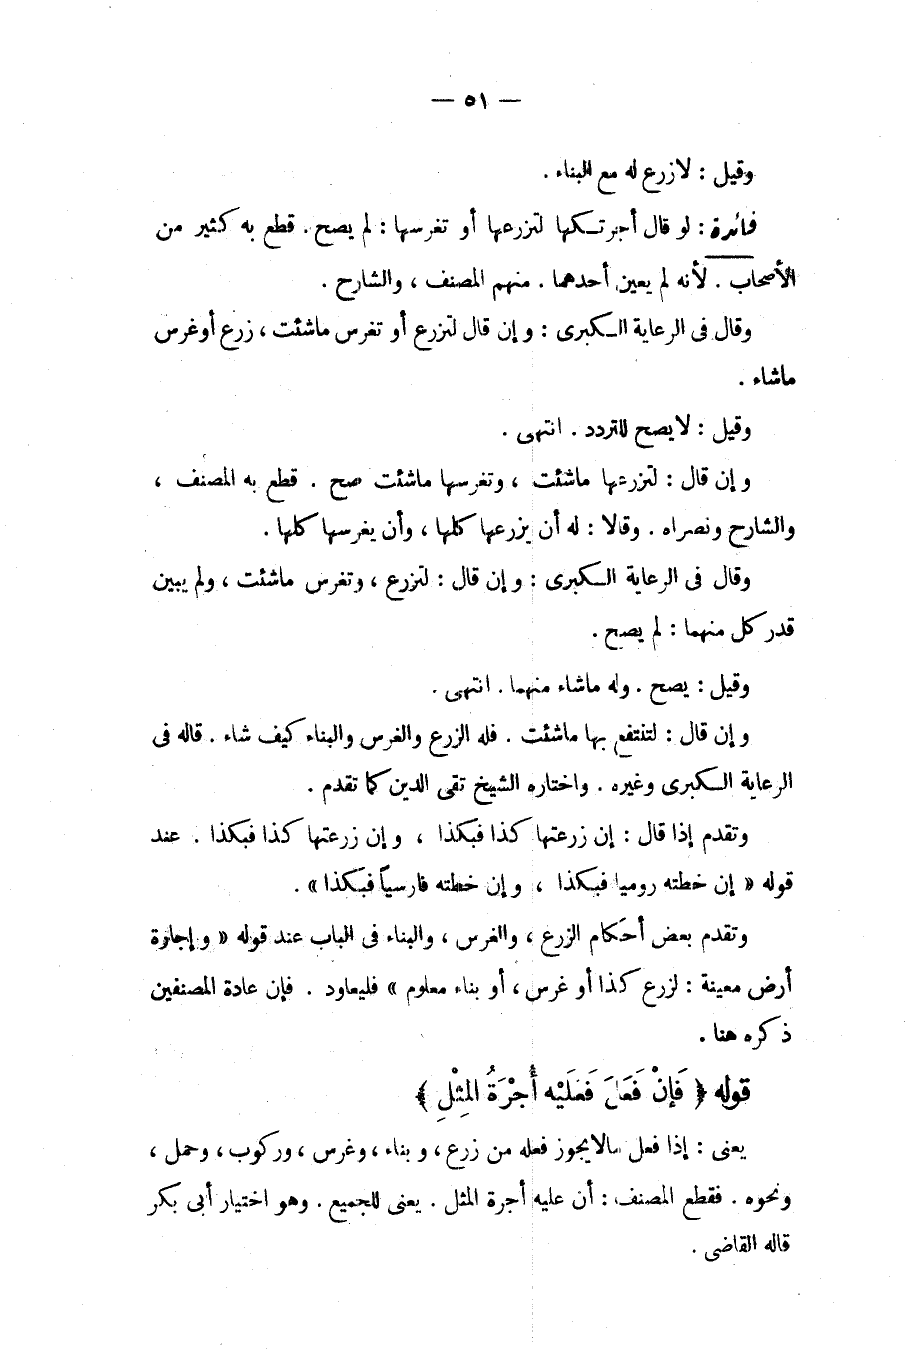 — ٥١ —
وقيل : لا زرع له مع البناء .
فائدة : لو قال أجرتكها لتزرعها أو تغرسها : لم يصح . قطع به كثير من
الأصحاب . لأنه لم يعين أحدهما . منهم المصنف ، والشارح .
وقال فى الرعاية الكبرى : وإن قال لتزرع أو تغرس ماشئت ، زرع أو غرس
ماشاء .
وقيل : لا يصح للتردد . انتهى .
وإن قال : لتزرعها ماشئت ، وتغرسها ماشئت صح . قطع به المصنف ،
والشارح ونصراه . وقالا : له أن يزرعها كلها ، وأن يغرسها كلها .
وقال فى الرعاية الكبرى : وإن قال : لتزرع ، وتغرس ماشئت ، ولم يبين
قدر كل منهما : لم يصح .
وقيل : يصح . وله ماشاء منهما . انتهى .
وإن قال : لتنتفع بها ماشئت . فله الزرع والغرس والبناء كيف شاء . قاله فى
الرعاية الكبرى وغيره . واختاره الشيخ تقى الدين كما تقدم .
وتقدم إذا قال : إن زرعتها كذا فبكذا ، وإن زرعتها كذا فبكذا . عند
قوله « إن خطته روميا فبكذا ، وإن خطته فارسياً فبكذا » .
وتقدم بعض أحكام الزرع ، والغرس ، والبناء فى الباب عند قوله « وإجازة
أرض معينة : لزرع كذا أو غرس ، أو بناء معلوم » فليعاود . فإن عادة المصنفين
ذكره هنا .
قوله ﴿ فَإِنْ فَعَلَ فَعَلَيْه أُجْرَةُ المِثْلِ ﴾
يعنى : إذا فعل مالايجوز فعله من زرع ، وبناء ، وغرس ، وركوب ، وحمل ،
ونحوه . فقطع المصنف : أن عليه أجرة المثل . يعنى للجميع . وهو اختيار أبى بكر
قاله القاضى .